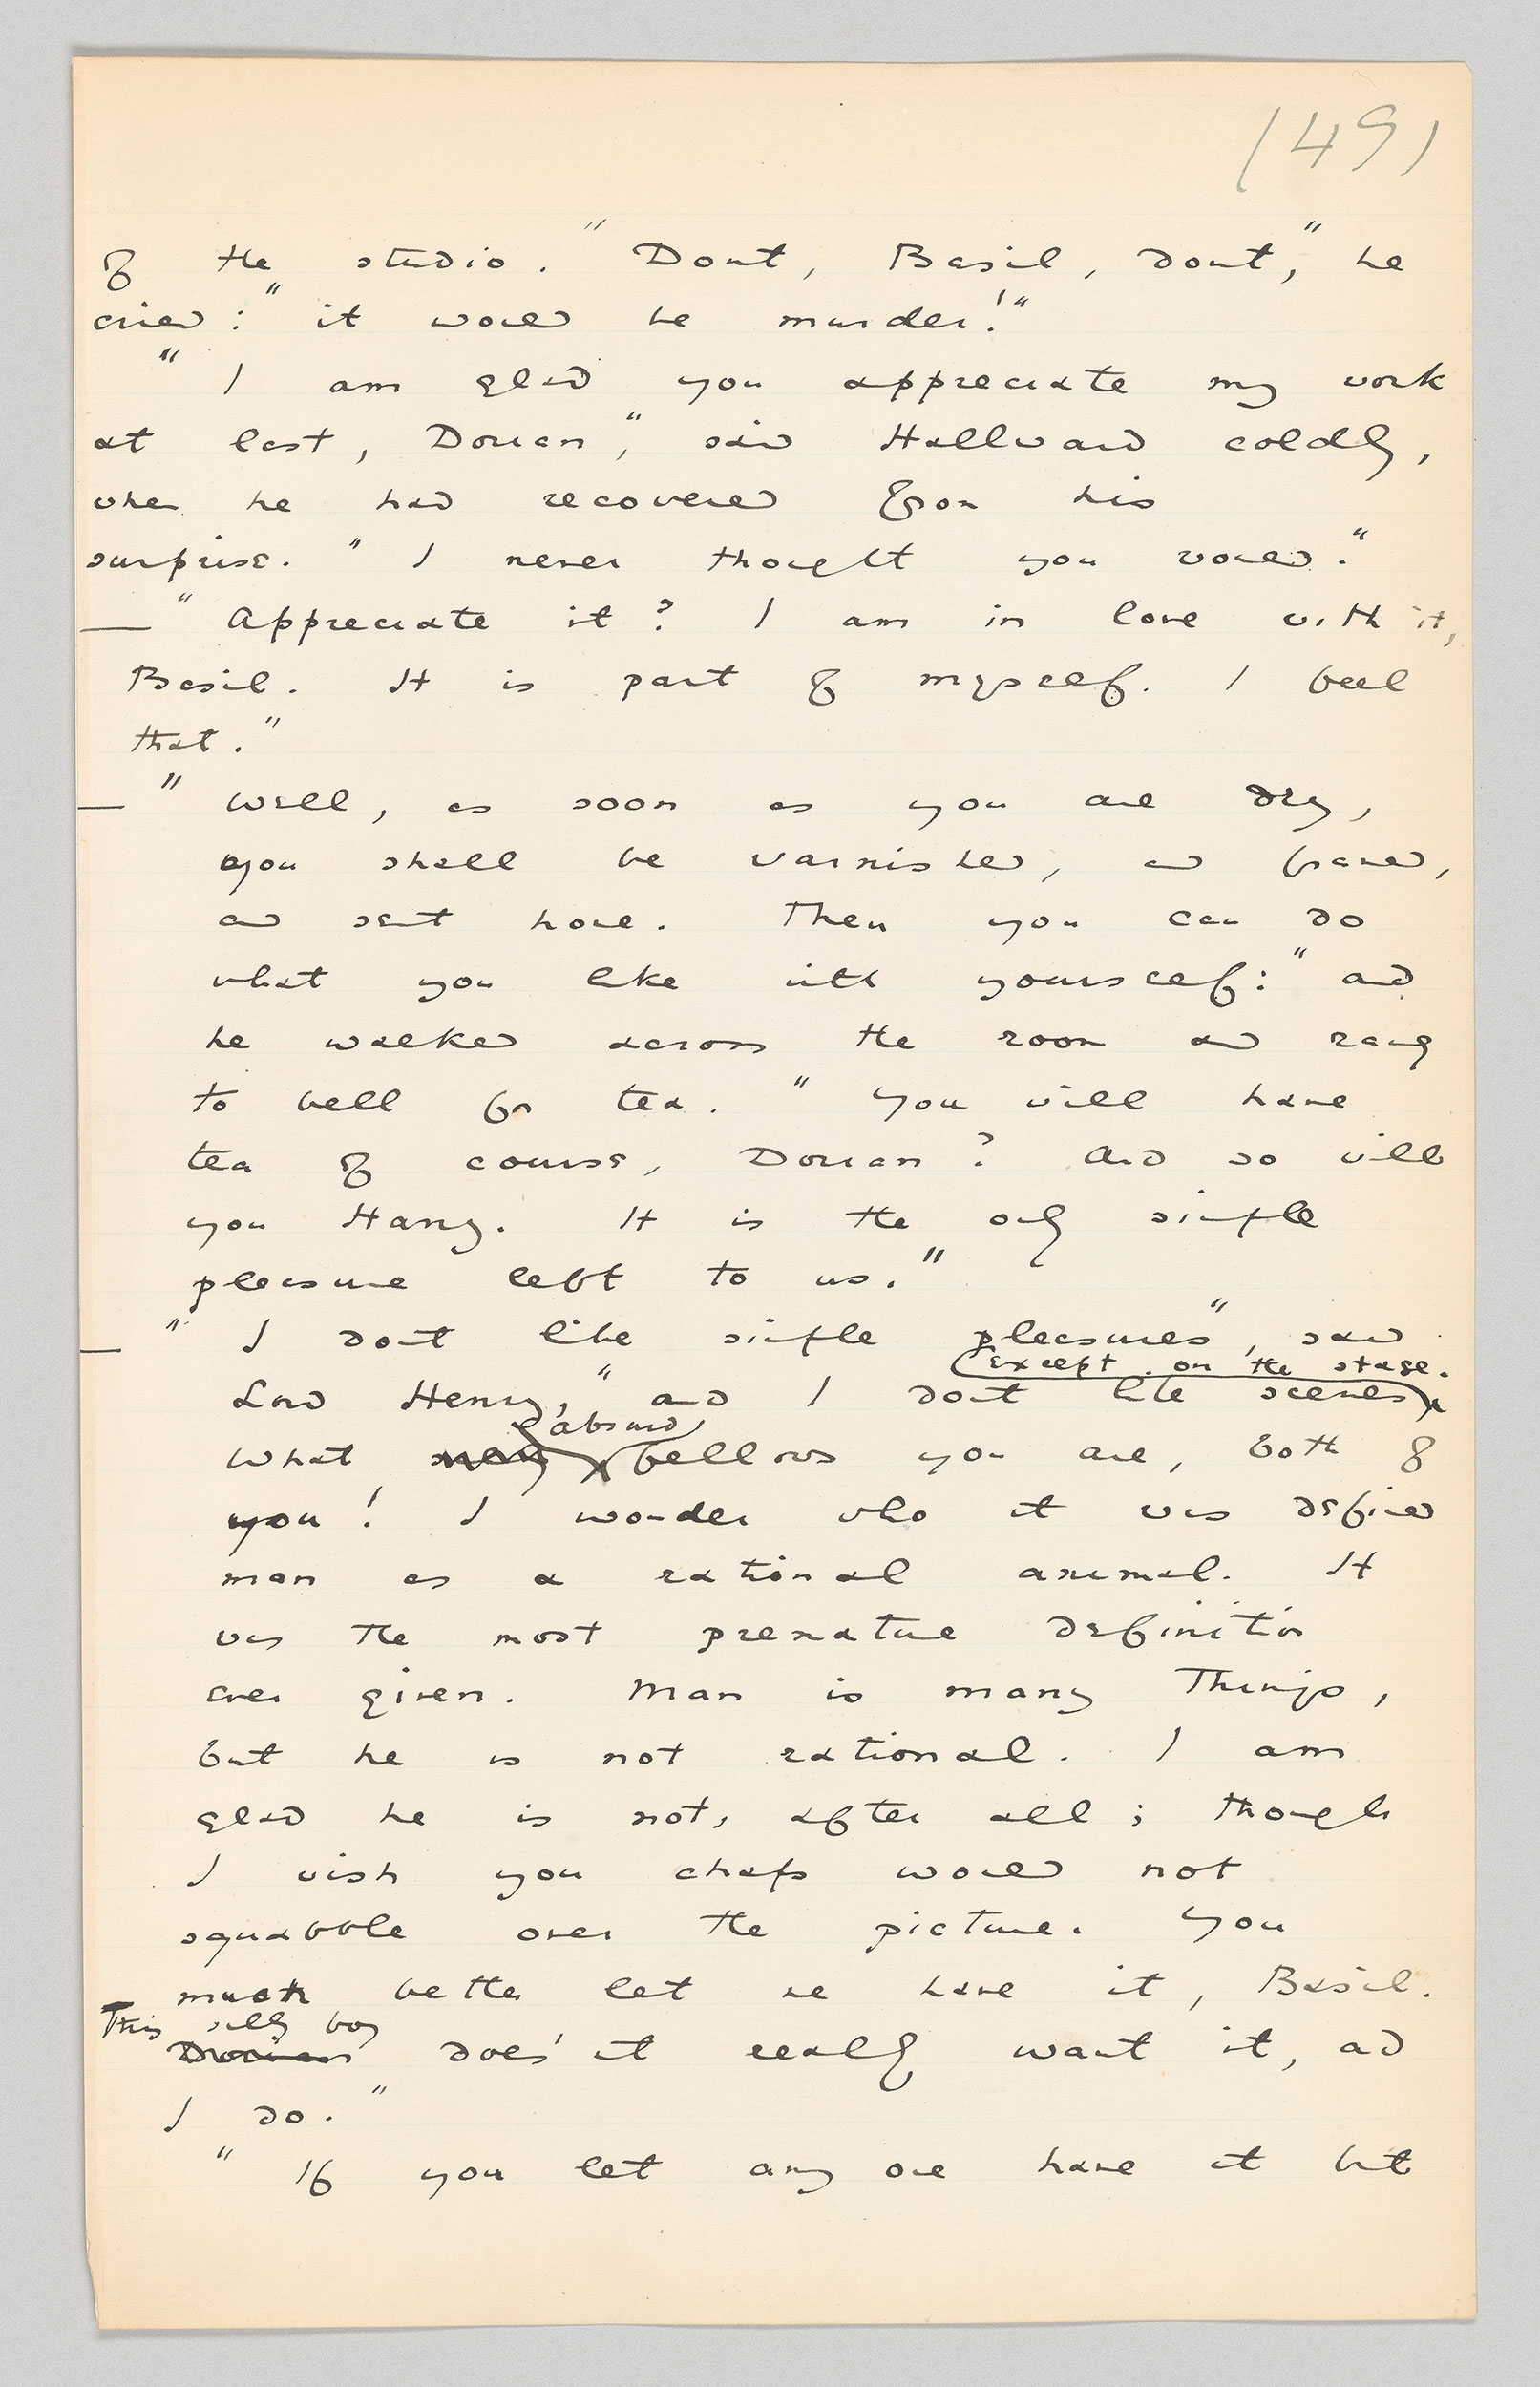 (49)
of the studio. "Dont, Basil, dont," he
cried: "it would be murder!"
"I am glad you appreciate my work
at last, Dorian", said Hallward coldly,
when he had recovered from his
surprise. "I never thought you would."
— "Appreciate it? I am in love with it,
Basil. It is part of myself. I feel
that."
— "Well, as soon as you are dry,
you shall be varnished, and framed,
and sent home. Then you can do
what you like with yourself:" and
he walked across the room and rang
to bell for tea. "You will have
tea of course, Dorian? And so will
you Harry. It is the only simple
pleasure left to us."
— "I dont like simple pleasures", said
except on the stage.
Lord Henry, "and I dont like scenes
absurd
What fellows you are, both of
you! I wonder who it was defined
man as a rational animal. It
was the most premature definition
ever given. Man is many things,
but he is not rational. I am
glad he is not, after all; though
I wish you chaps would not
squabble over the picture. You
much better let me have it, Basil.
This silly boy
Dorian does'nt really want it, and
I do."
"If you let any one have it but